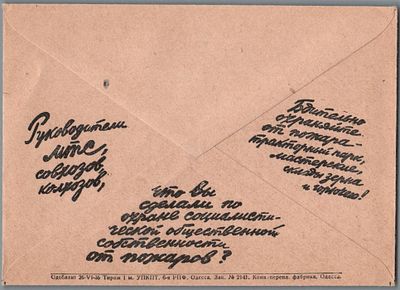 Руководители
МТС,
совхозов,
колхозов,
что вы
сделали по
охране социалисти-
ческой общественной
собственности
от пожаров?
Бдительно
охраняйте
от пожара-
тракторный парк,
мастерские,
склады зерна
и
Одоблліт 26-VI-36 Тираж 1 м. УПКПТ. 6-я Одесса. Зак. № 2141. Конв.-перепл. фабрика, Одесса.